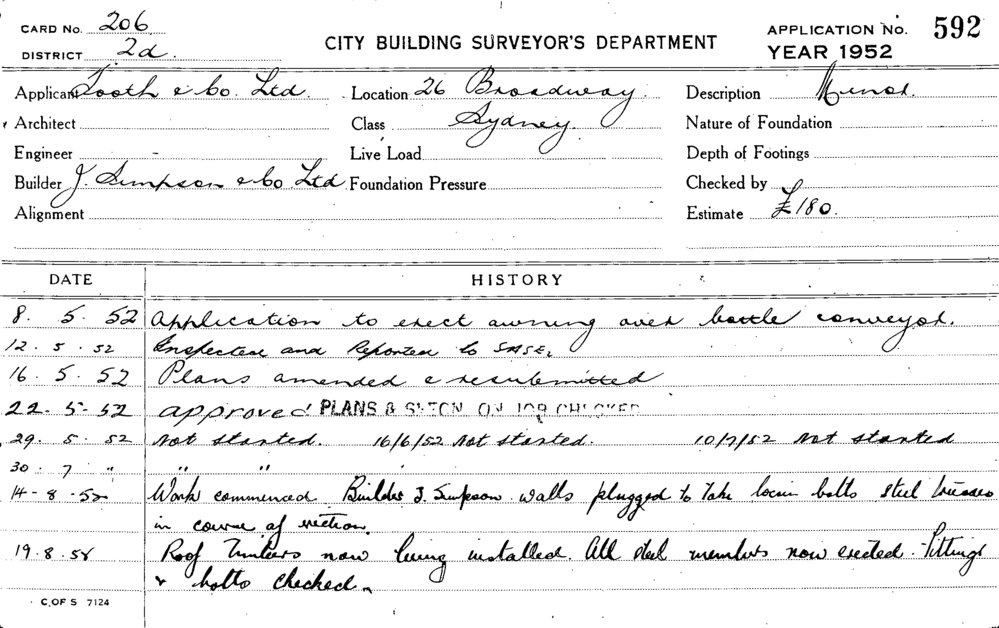 CARD No. 206
DISTRICT 2d.
CITY BUILDING SURVEYOR'S DEPARTMENT
APPLICATION No. 592
YEAR 1952
Applicant Tooth & Co. Ltd. Location 26 Broadway. Description Minor.
Architect Class Sydney. Nature of Foundation
Engineer - Live Load Depth of Footings
Builder J. Simpson & Co Ltd Foundation Pressure Checked by
Alignment Estimate £180.
DATE HISTORY
8. 5. 52 Application to erect awning over bottle conveyor.
12. 5. 52 Inspected and Reported to
16. 5. 52 Plans amended & resubmitted
22. 5- 52 approved PLANS & SPECN. ON JOB CHECKED
29. 5. 52 Not started. 16/6/52 Not started. 10/7/52 Not started
30. 7 " " "
14-8-52 Work commenced Builder J. Simpson walls plugged to take bolts steel trusses
in course of erection.
19.8.52 Roof Timbers now being installed. All steel members now erected. Fittings
& bolts checked.
C.OF S 7124